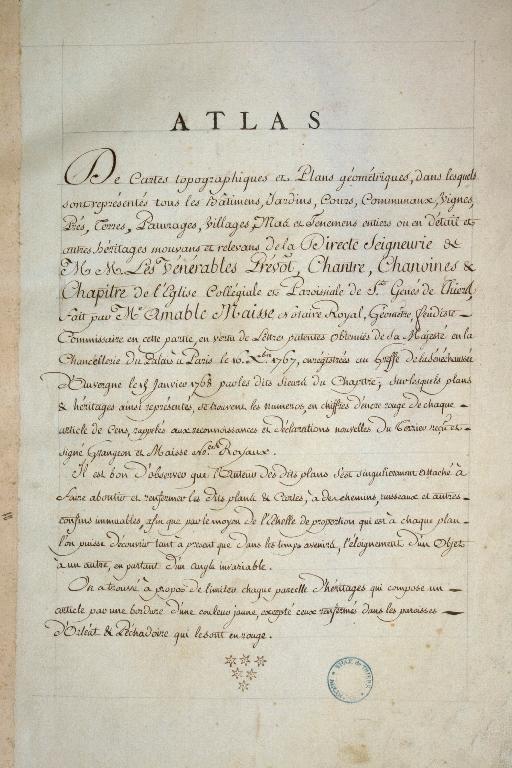 ATLAS
De Cartes topographiques et Plans géométriques, dans lesquels
sont représentés tous les Bâtimens, Jardins, Cours, Communaux, Vignes,
Prés, Terres, Pauvrages, Villages, Mas et Tenemens entiers ou en détail et
autres héritages mouvans et relevans de la Directe Seigneurie de
M.M. Les Vénérables Prévot, Chantre, Chanoines &
Chapitre de l'Eglise Collégiale et Paroissiale de St. Genés de Thierd,
Fait par Me Amable Maisse Notaire Royal, Géometre, Feudiste
Commissaire en cette partie, en vertu de Lettres patentes obtenües de Sa Majesté en la
Chancellerie du Palais à Paris le 16. Xbre 1767, enregistrées au Greffe de la Senechaussée
D'auvergne le 18 Janvier 1768 par les dits Sieurs du Chapitre; Sur lesquels plans
& héritages ainsi représentés, se trouvent les numeros, en chiffres d'encre rouge de chaque
article de Cens, rappelés aux reconnoissances et déclarations nouvelles du Terrier reçu et
signé Grangeon et Maisse Nores Royaux.
Il est bon d'observer que l'Auteur des dits plans s'est singulierement attaché à
faire aboutir et renfermer les dits plans & Cartes, à des chemins, ruisseaux et autres
confins immuables, afin que par le moyen de l'échelle de proportion qui est à chaque plan
l'on puisse découvrir tant à present que dans les temps avenirs, l'éloignement d'un Objet
à un autre, en partant d'un angle invariable.
On a trouvé à propos de limiter chaque parcelle d'héritages qui compose un
article par une bordure d'une couleur jaune, excepté ceux renfermés dans les paroisses
D'Orléat & Péchadoire qui le sont en rouge.
VILLE de THIERS